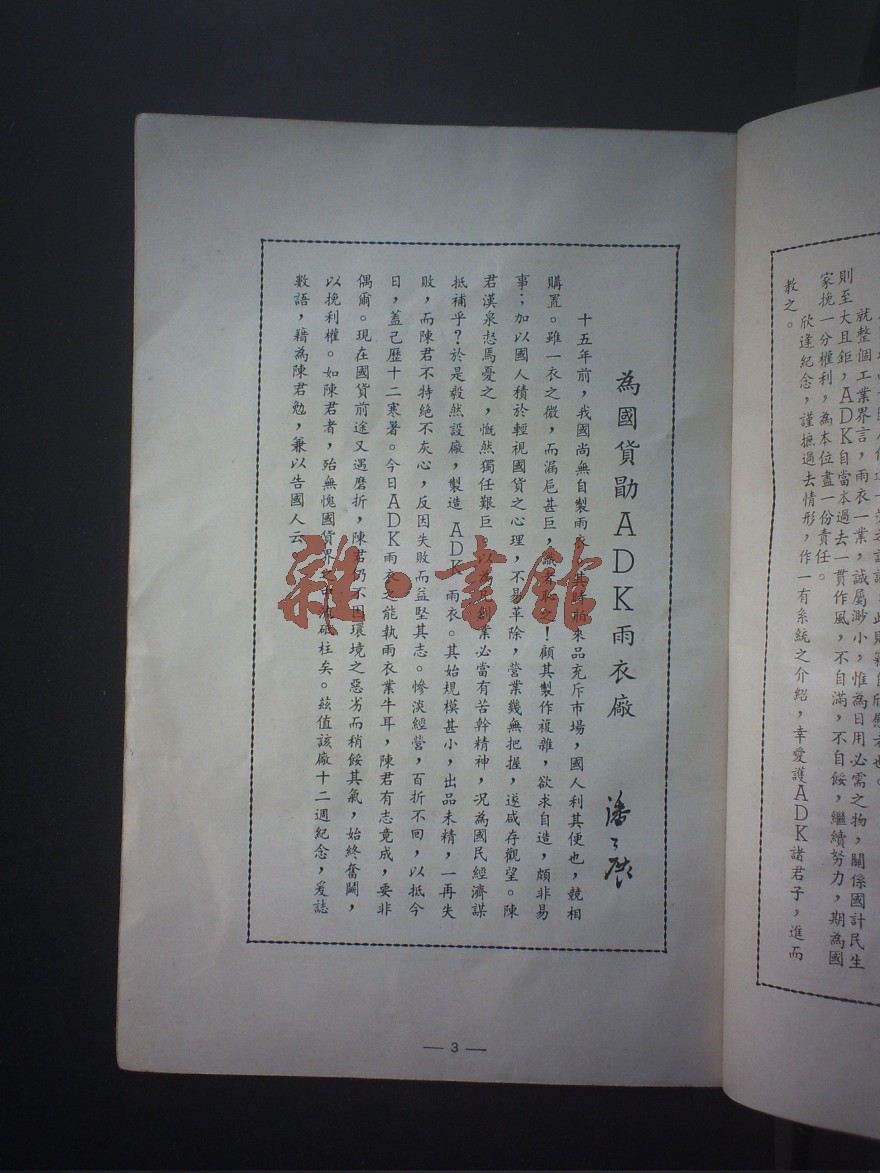 此則竊自欣慰者也。
就整個工業界言，雨衣一業，誠屬渺小，惟為日用必需之物，關係國計民生
則至大且鉅，ADK自當本過去一貫作風，不自滿，不自餒，繼續努力，期為國
家挽一分權利，為本位盡一份責任。
欣逢紀念，謹摭過去情形，作一有系統之介紹，幸愛護ADK諸君子，進而
教之。
為國貨勖ADK雨衣廠 潘公展
十五年前，我國尚無自製雨衣，其時舶來品充斥市場，國人利其便也，競相
購置。雖一衣之微，而漏巵甚巨，識者恥之！顧其製作複雜，欲求自造，頗非易
事；加以國人積於輕視國貨之心理，不易革除，營業幾無把握，遂咸存觀望。陳
君漢泉惄焉憂之，慨然獨任艱巨，以為凡創業必當有苦幹精神，况為國民經濟謀
抵補乎？於是毅然設廠，製造ADK雨衣。其始規模甚小，出品未精，一再失
敗，而陳君不特絕不灰心，反因失敗而益堅其志。慘淡經營，百折不回，以抵今
日，蓋己歷十二寒暑。今日ADK雨衣之能執雨衣業牛耳，陳君有志竟成，要非
偶爾。現在國貨前途又遇磨折，陳君仍不因環境之惡劣而稍餒其氣，始終奮鬬，
以挽利權。如陳君者，殆無愧國貨界之中流砥柱矣。茲值該廠十二週紀念，爰誌
數語，藉為陳君勉，兼以告國人云。
雜·書館
— 3 —